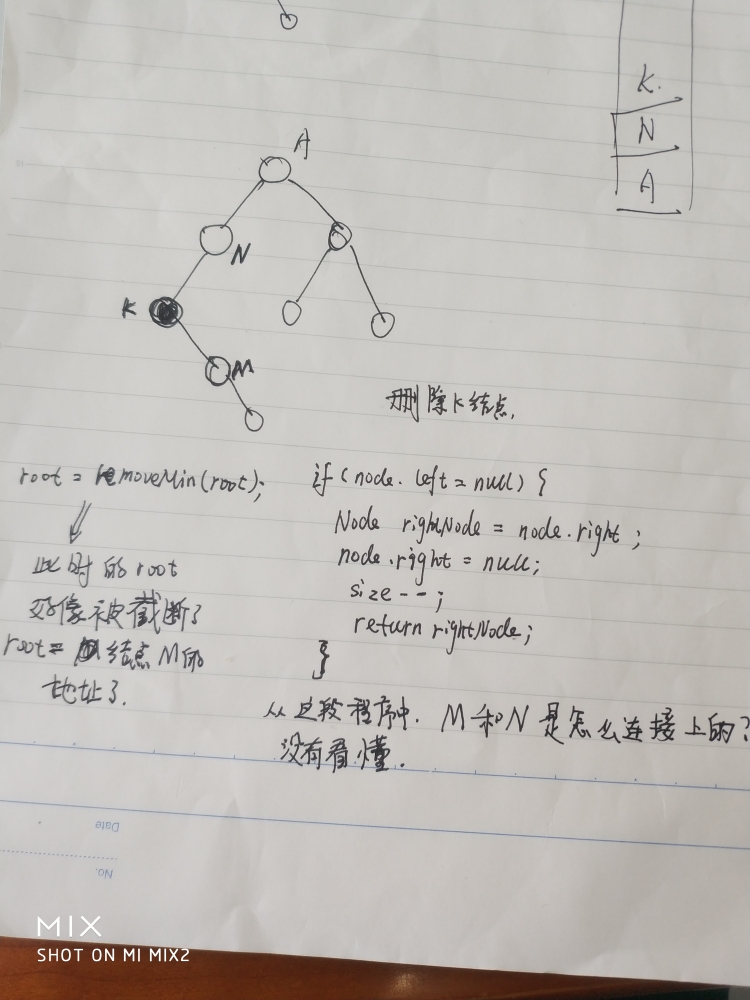 K.
N
A
A
N
K
M
删除K结点.
root = removeMin(root);
此时的root
好像被截断了
root= 结点M的
地址了.
if (node.left = null) {
Node rightNode = node.right ;
node.right = null;
size -- ;
return rightNode;
}
从这段程序中. M和N是怎么连接上的?
没有看懂.
Date
No.
MIX
SHOT ON MI MIX2